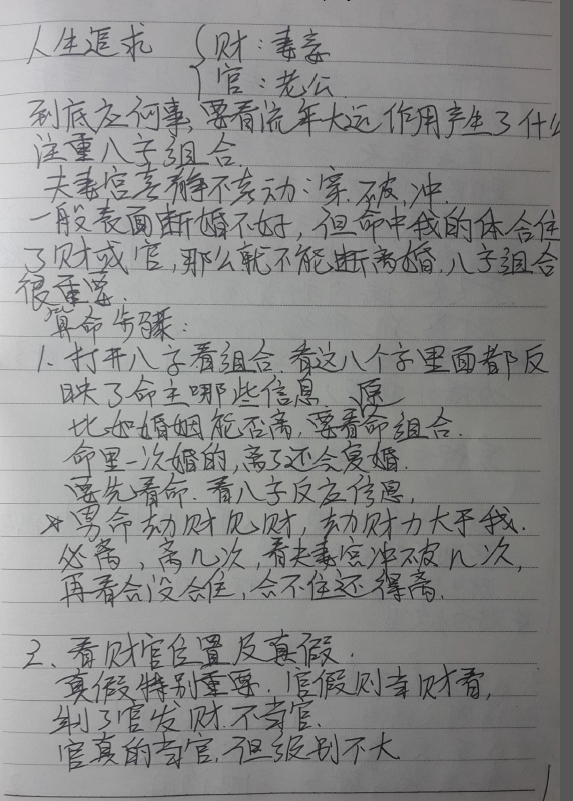 人生追求 { 财：妻妾
官：老公
到底应何事，要看流年大运作用产生了什么
注重八字组合.
夫妻宫喜静不喜动：穿.破,冲.
一般表面断婚不好，但命中我的体合住
了财或官，那么就不能断离婚.八字组合
很重要.
算命步骤：
1. 打开八字看组合.看这八个字里面都反
映了命主哪些信息 原
比如婚姻能否离,要看命组合.
命里一次婚的,离了还会复婚.
要先看命.看八字反应信息,
☆男命劫财见财，劫财力大于我.
必离，离几次，看夫妻宫冲破几次,
再看合没合住，合不住还得离.
2、看财官位置及真假.
真假特别重要.官假则当财看,
制了官发财.不当官.
官真的当官.但级别不大